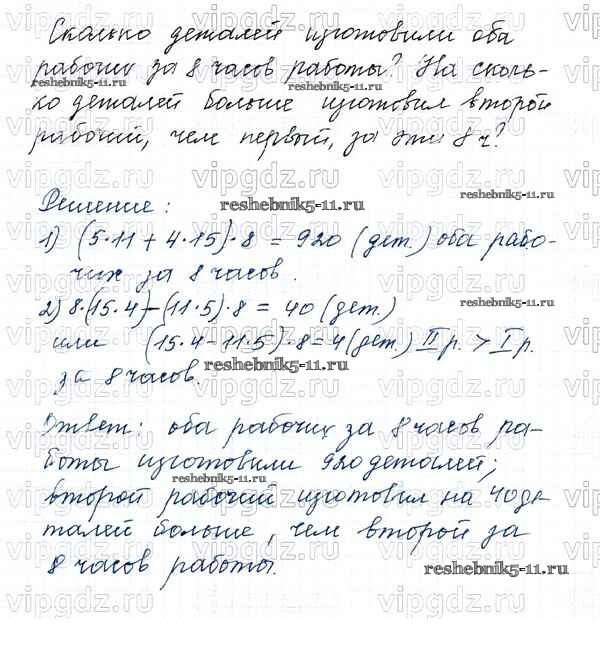 Сколько деталей изготовили оба
рабочих за 8 часов работы? На сколь-
ко деталей больше изготовил второй
рабочий, чем первый, за эти 8 ч?
Решение:
1) (5·11 + 4·15)·8 = 920 (дет.) оба рабо-
чих за 8 часов.
2) 8·(15·4)-(11·5)·8 = 40 (дет.)
или (15·4-11·5)·8=4 (дет.) II р. > I р.
за 8 часов.
Ответ: оба рабочих за 8 часов ра-
боты изготовили 920 деталей;
второй рабочий изготовил на 40 де-
талей больше, чем второй за
8 часов работы.
vipgdz.ru
reshebnik5-11.ru